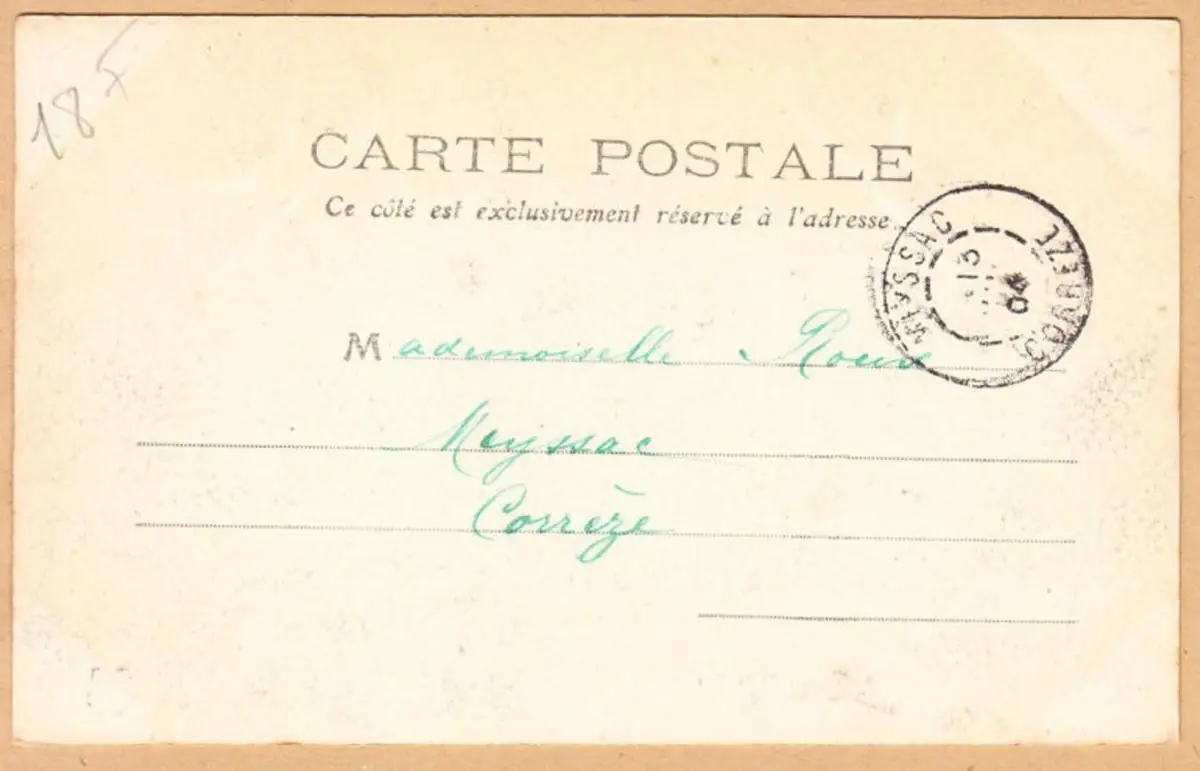 18 F
CARTE POSTALE
Ce côté est exclusivement réservé à l'adresse.
MEYSSAC
CORRÈZE
13
04
Mademoiselle Roux
Meyssac
Corrèze